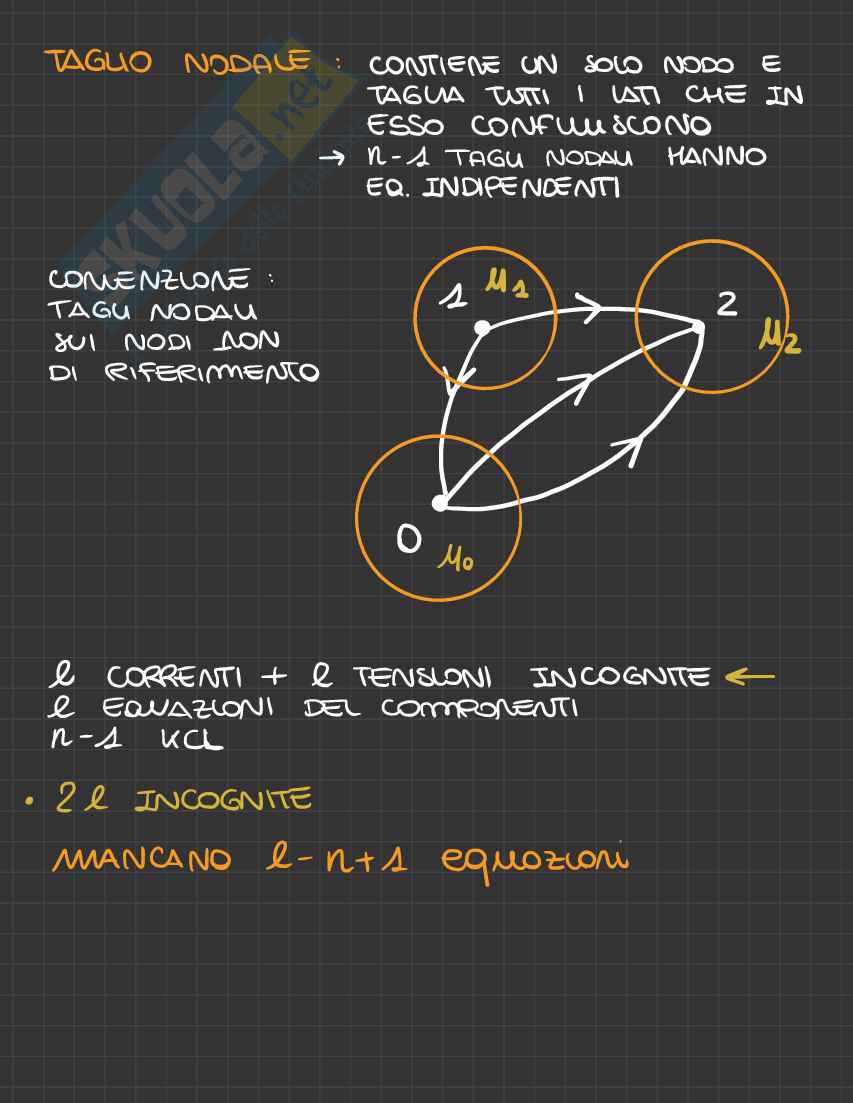 TAGLIO NODALE : CONTIENE UN SOLO NODO E
TAGLIA TUTTI I LATI CHE IN
ESSO CONFLUISCONO
→ n-1 TAGLI NODALI HANNO
EQ. INDIPENDENTI
CONVENZIONE :
TAGLI NODALI
SUI NODI NON
DI RIFERIMENTO
1 μ1
2
μ2
0
μ0
l CORRENTI + l TENSIONI INCOGNITE ←
l EQUAZIONI DEI COMPONENTI
n-1 KCL
• 2l INCOGNITE
MANCANO l-n+1 equazioni
SKUOLA.net